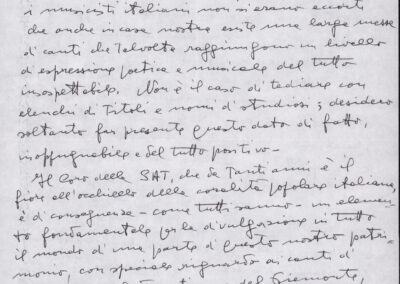 i musicisti italiani non si erano accorti
che anche in casa nostra esiste una larga messe
di canti che talvolta raggiungono un livello
di espressione poetica e musicale del tutto
insospettabile. Non è il caso di tediare con
elenchi di titoli e nomi d'studiosi; desidero
soltanto far presente questo dato di fatto,
inoppugnabile e del tutto positivo -
Il Coro della SAT, che da tanti anni è il
fiore all'occhiello della coralità popolare italiana,
è di conseguenza - come tutti sanno - un elemen-
to fondamentale per la divulgazione in tutto
il mondo d'una parte d'questo nostro patri-
monio, con speciale riguardo ai canti d'
del Piemonte,